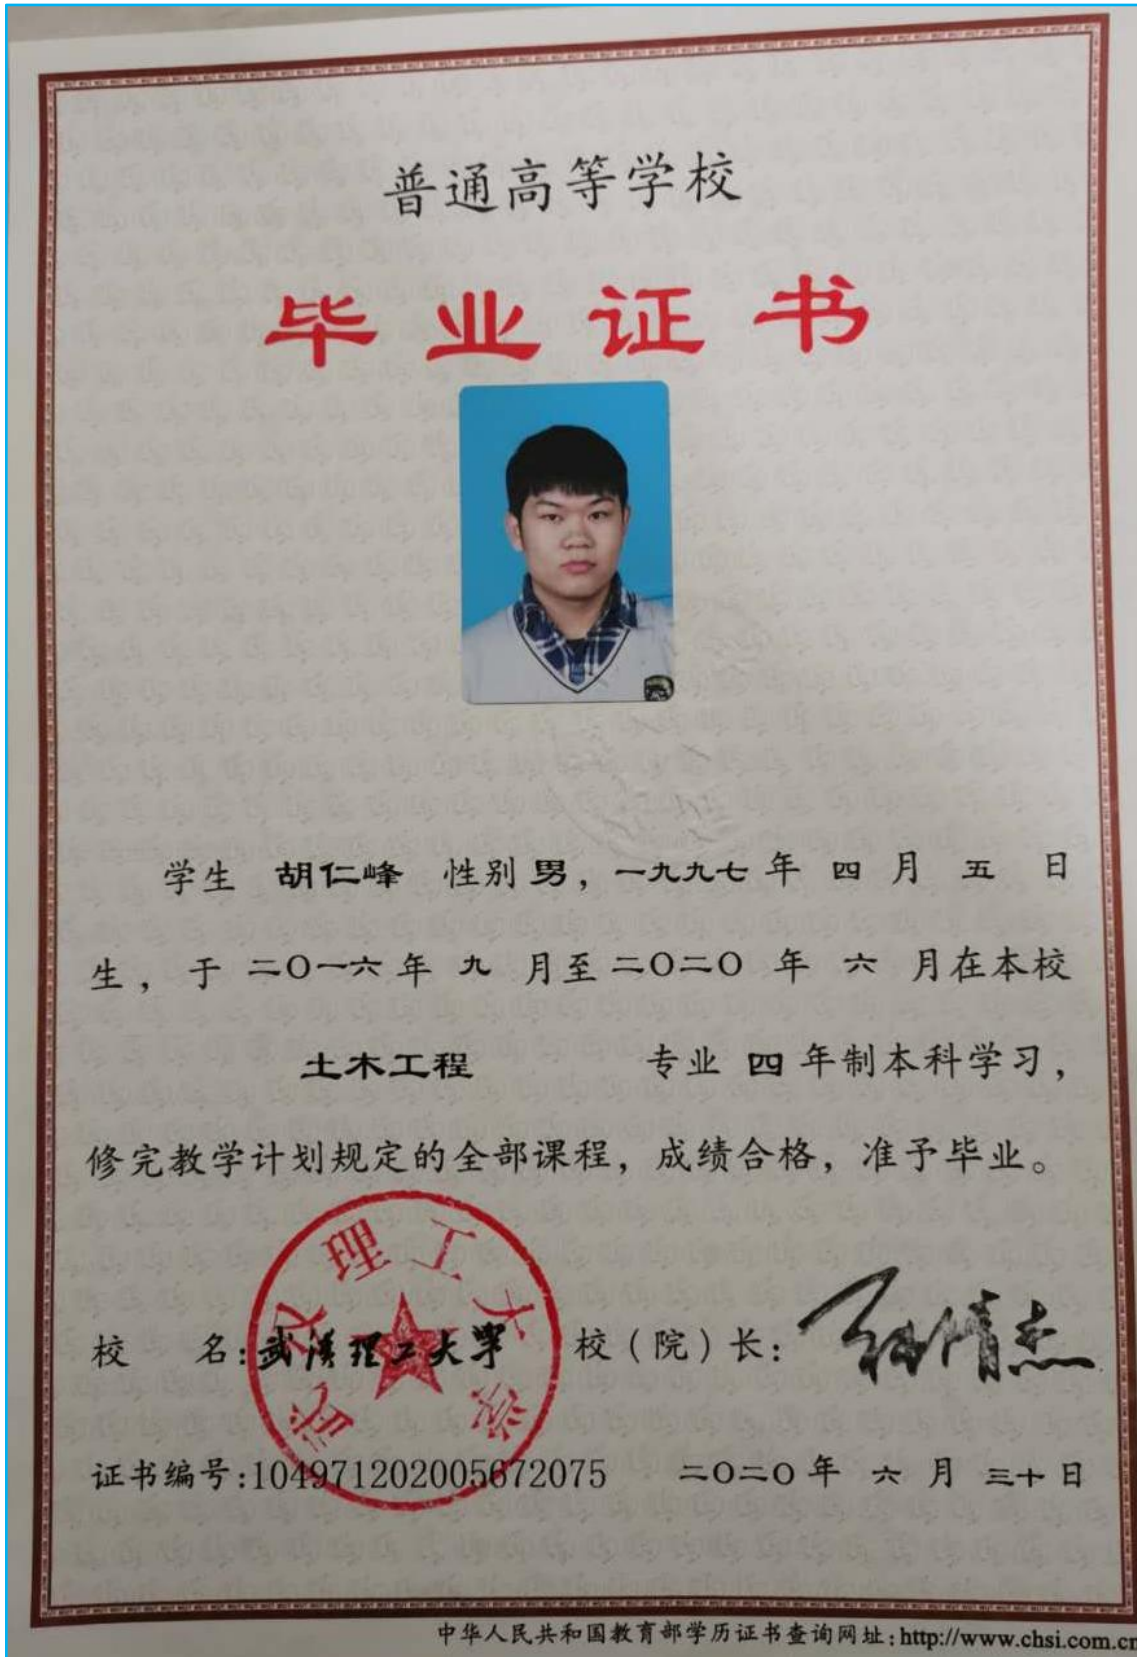 普通高等学校
毕业证书
学生 胡仁峰 性别 男，一九九七 年 四 月 五 日
生，于 二〇一六 年 九 月至 二〇二〇 年 六 月在本校
土木工程 专业 四 年制本科学习，
修完教学计划规定的全部课程，成绩合格，准予毕业。
武汉理工大学
校 名：武汉理工大学 校（院）长：
证书编号：104971202005672075 二〇二〇 年 六 月 三十 日
中华人民共和国教育部学历证书查询网址：http://www.chsi.com.cn